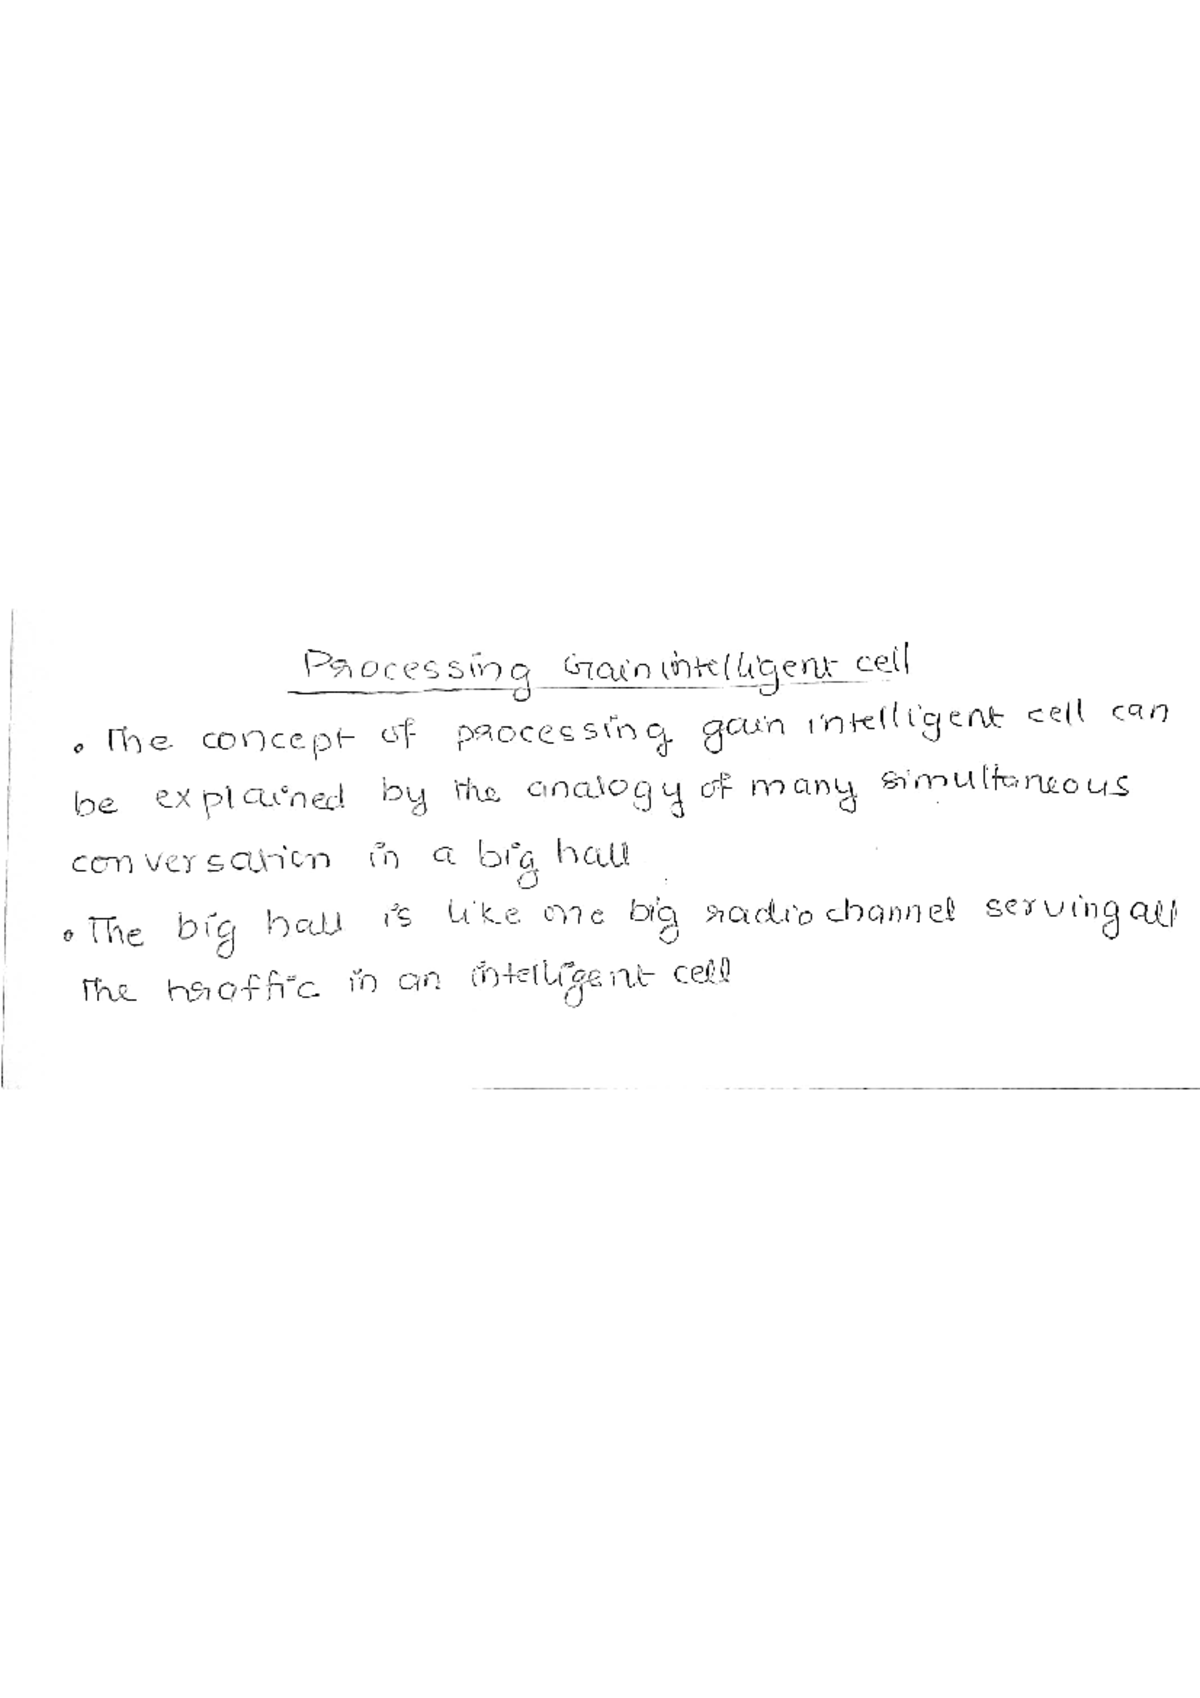 Processing Gain intelligent cell
• The concept of processing gain intelligent cell can
be explained by the analogy of many simultaneous
conversation in a big hall
• The big hall is like one big radio channel serving all
the traffic in an intelligent cell